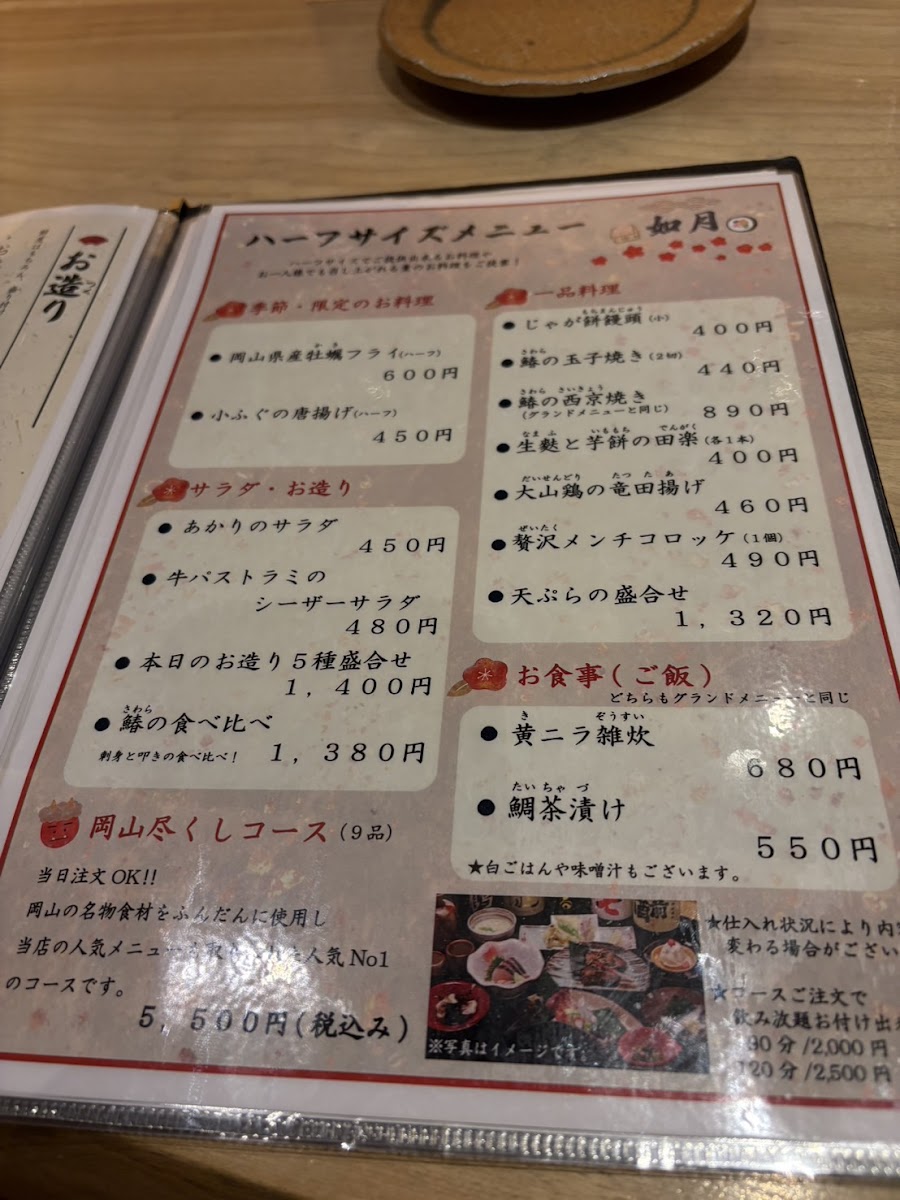 お造り
ハーフサイズメニュー
如月
ハーフサイズでご提供出来るお料理や
お一人様でも召し上がれる量のお料理もご提案！
季節・限定のお料理
● 岡山県産牡蠣フライ(ハーフ)
600円
● 小ふぐの唐揚げ(ハーフ)
450円
サラダ・お造り
● あかりのサラダ
450円
● 牛パストラミの
シーザーサラダ
480円
● 本日のお造り5種盛合せ
1,400円
● 鰆の食べ比べ
刺身と叩きの食べ比べ！ 1,380円
岡山尽くしコース(9品)
当日注文OK!!
岡山の名物食材をふんだんに使用し
当店の人気メニュー 人気No1
のコースです。
5,500円(税込み)
一品料理
● じゃが餅饅頭(小)
400円
● 鰆の玉子焼き(2切)
440円
● 鰆の西京焼き
(グランドメニューと同じ) 890円
● 生麩と芋餅の田楽(各1本)
400円
● 大山鶏の竜田揚げ
460円
● 贅沢メンチコロッケ(1個)
490円
● 天ぷらの盛合せ
1,320円
お食事(ご飯)
どちらもグランドメニューと同じ
● 黄ニラ雑炊
680円
● 鯛茶漬け
550円
★白ごはんや味噌汁もございます。
※写真はイメージです。
★仕入れ状況により内
変わる場合がござい
★コースご注文で
飲み放題お付け出
90分/2,000円
120分/2,500円